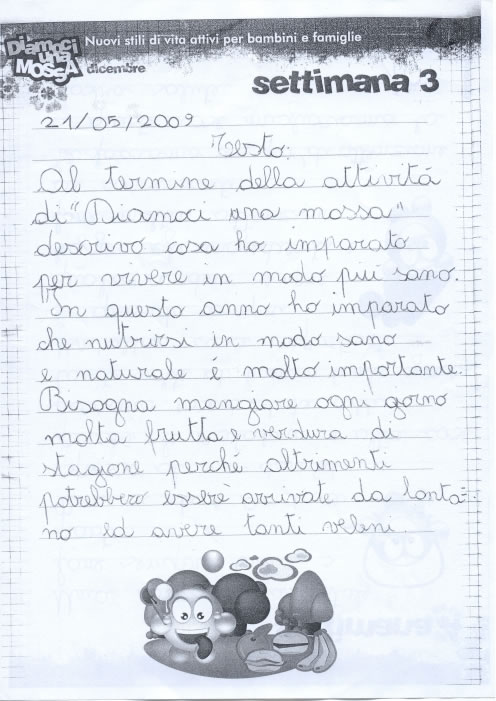 Diamoci
una
MOSSA
Nuovi stili di vita attivi per bambini e famiglie
dicembre
settimana 3
21/05/2009
Testo:
Al termine della attivitá
di "Diamoci una mossa"
descrivo cosa ho imparato
per vivere in modo piú sano.
In questo anno ho imparato
che nutrirsi in modo sano
e naturale é molto importante.
Bisogna mangiare ogni giorno
molta frutta e verdura di
stagione perché altrimenti
potrebbero esserè arrivate da lonta=
no ed avere tanti veleni.